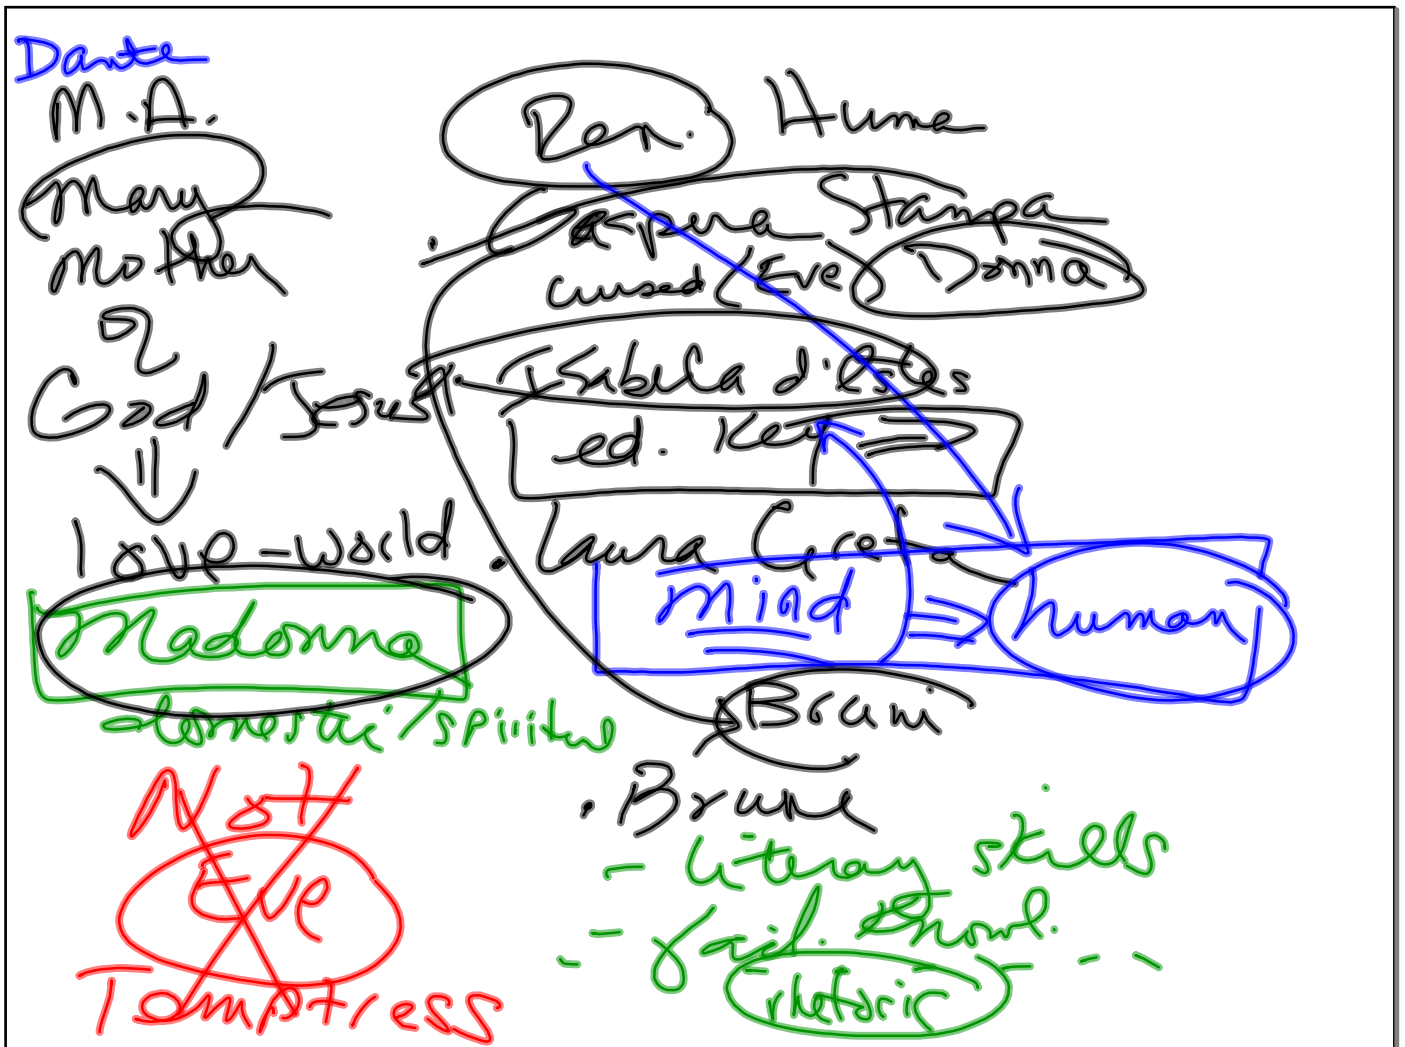 Dante
M.A.
Mary
Mother
God/Jesus
love-world
Madonna
domestic/spiritual
Not
Eve
Temptress
Ren. Huma
Gaspera Stampa
cursed (Eve) Donna
Isabella d'Estes
ed. Key
Laura Creta
Mind human
Brain
Brune
- literary skills
- knowl.
rhetoric